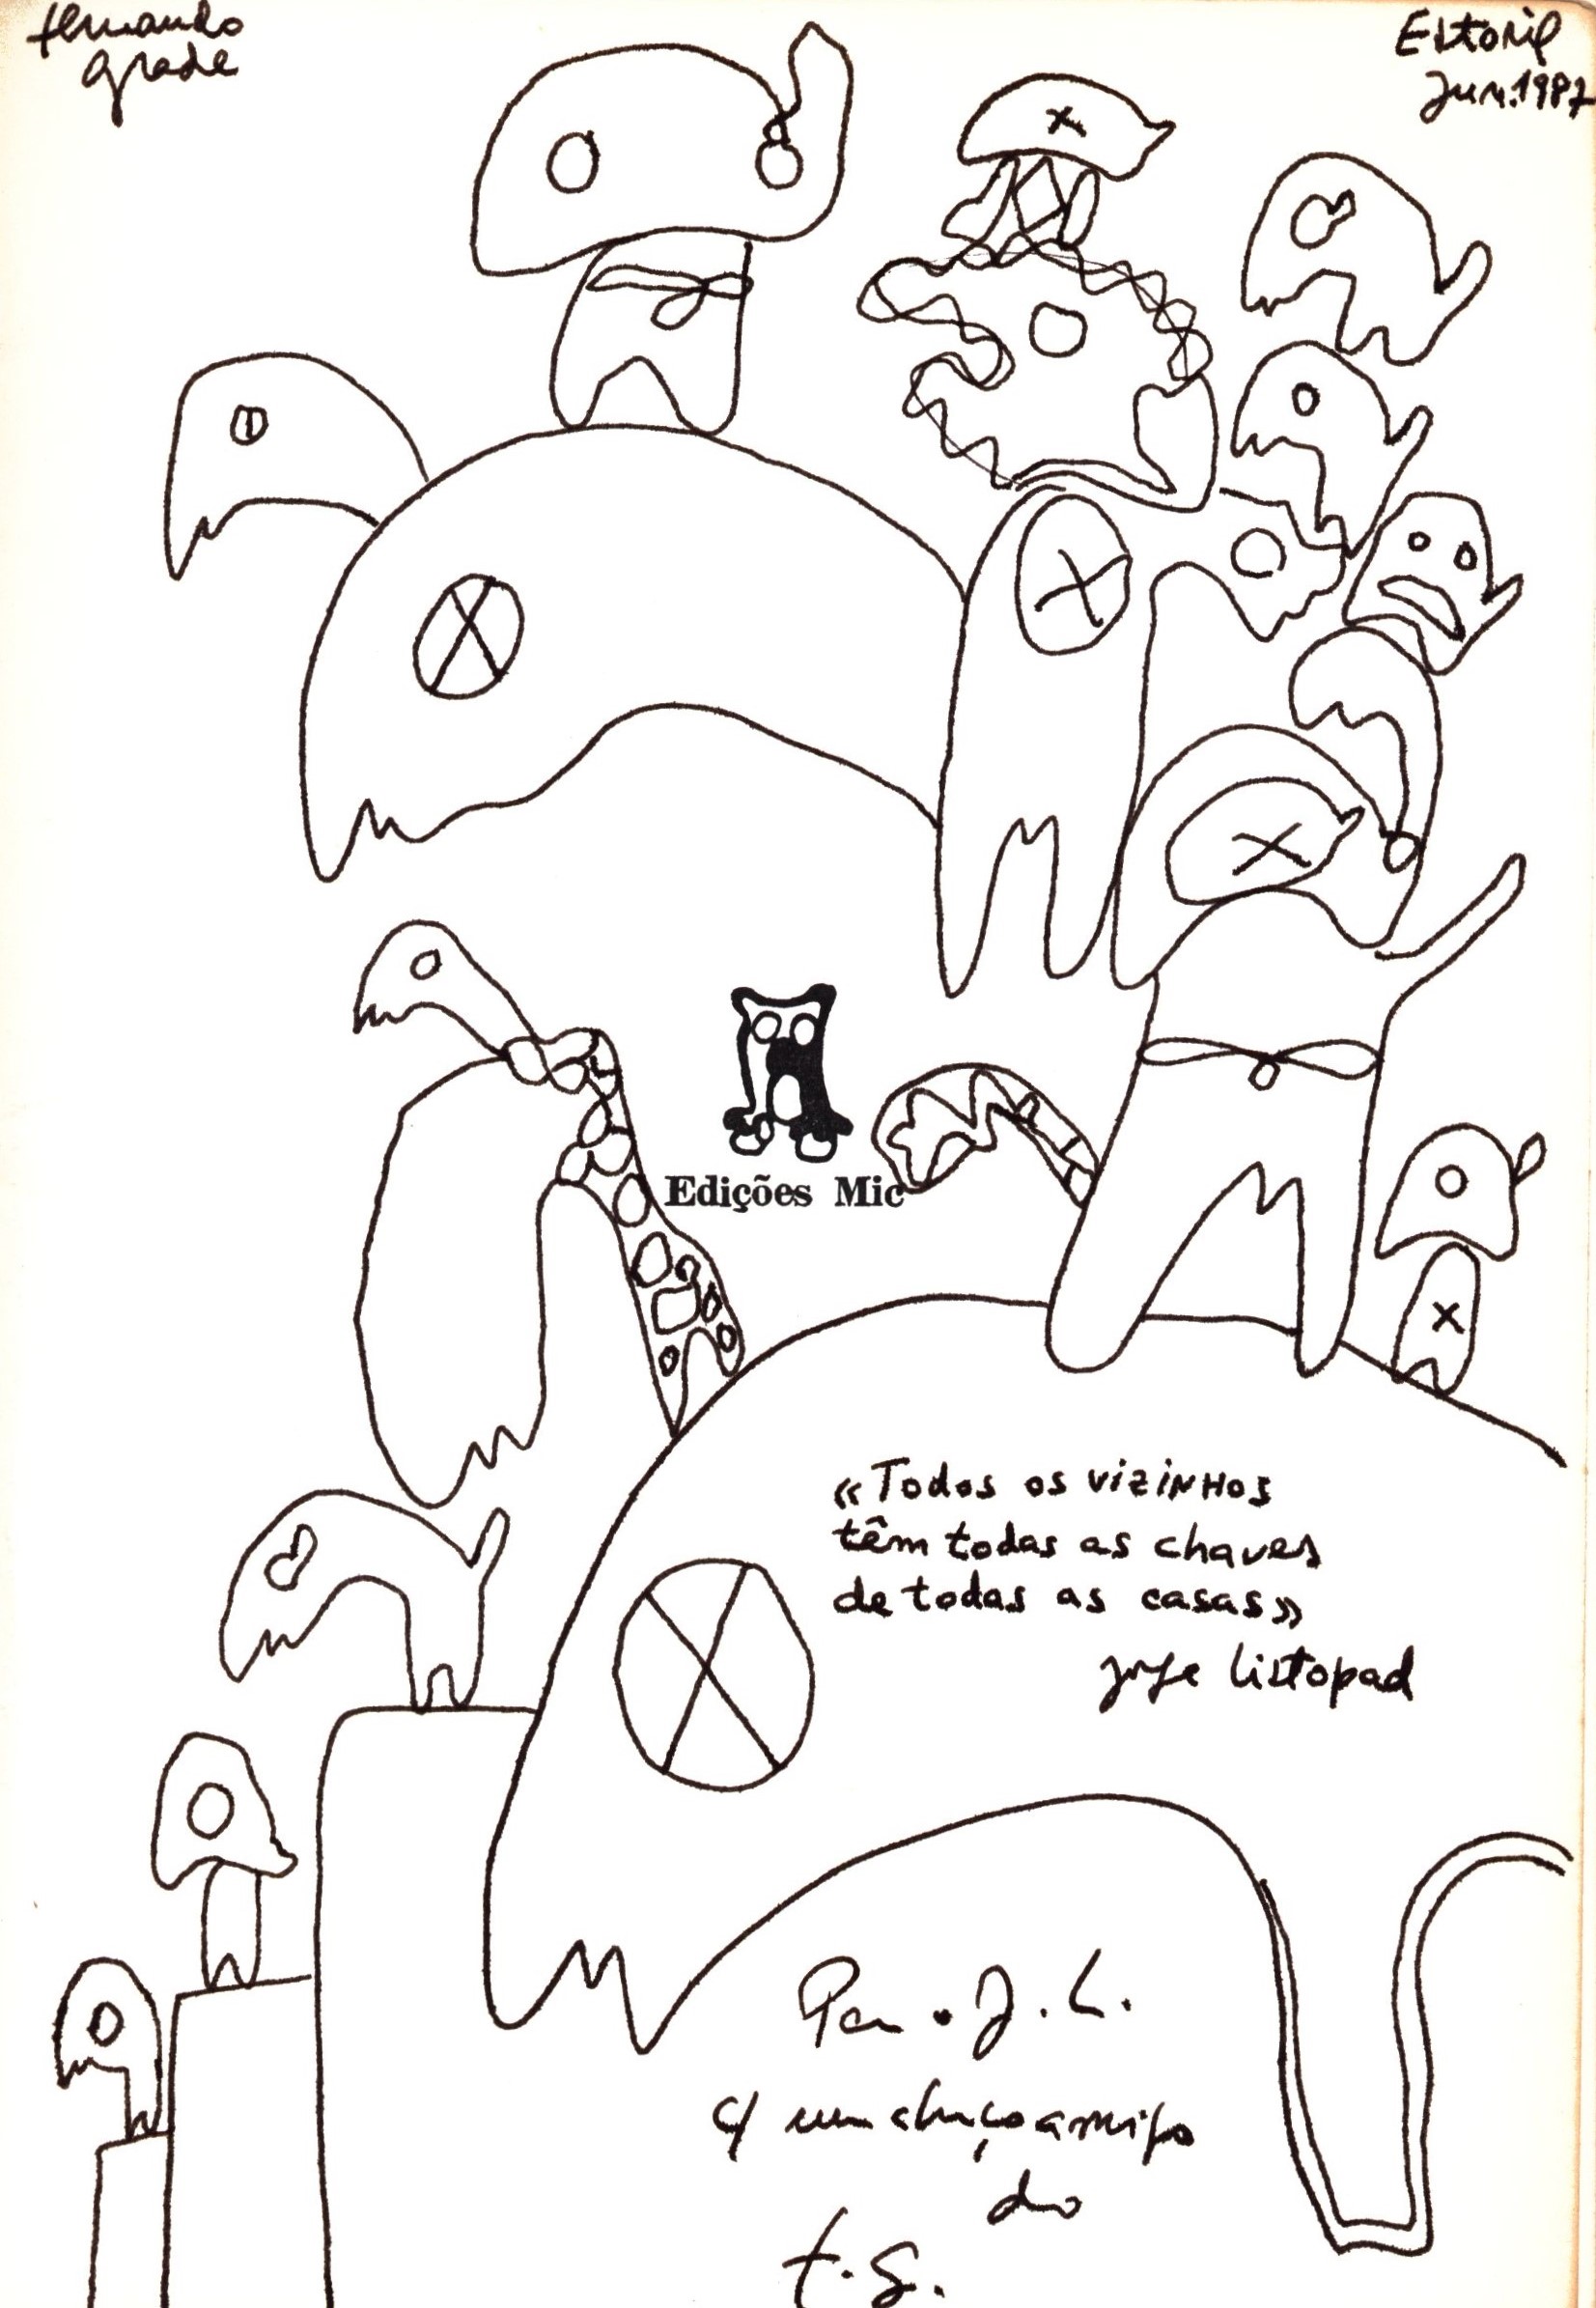 fernando
grade
Estoril
Jun. 1987
Edições Mic
«Todos os vizinhos
têm todas as chaves
de todas as casas»
jorge listopad
Para J. L.
c/ um abraço amigo
do
f. g.